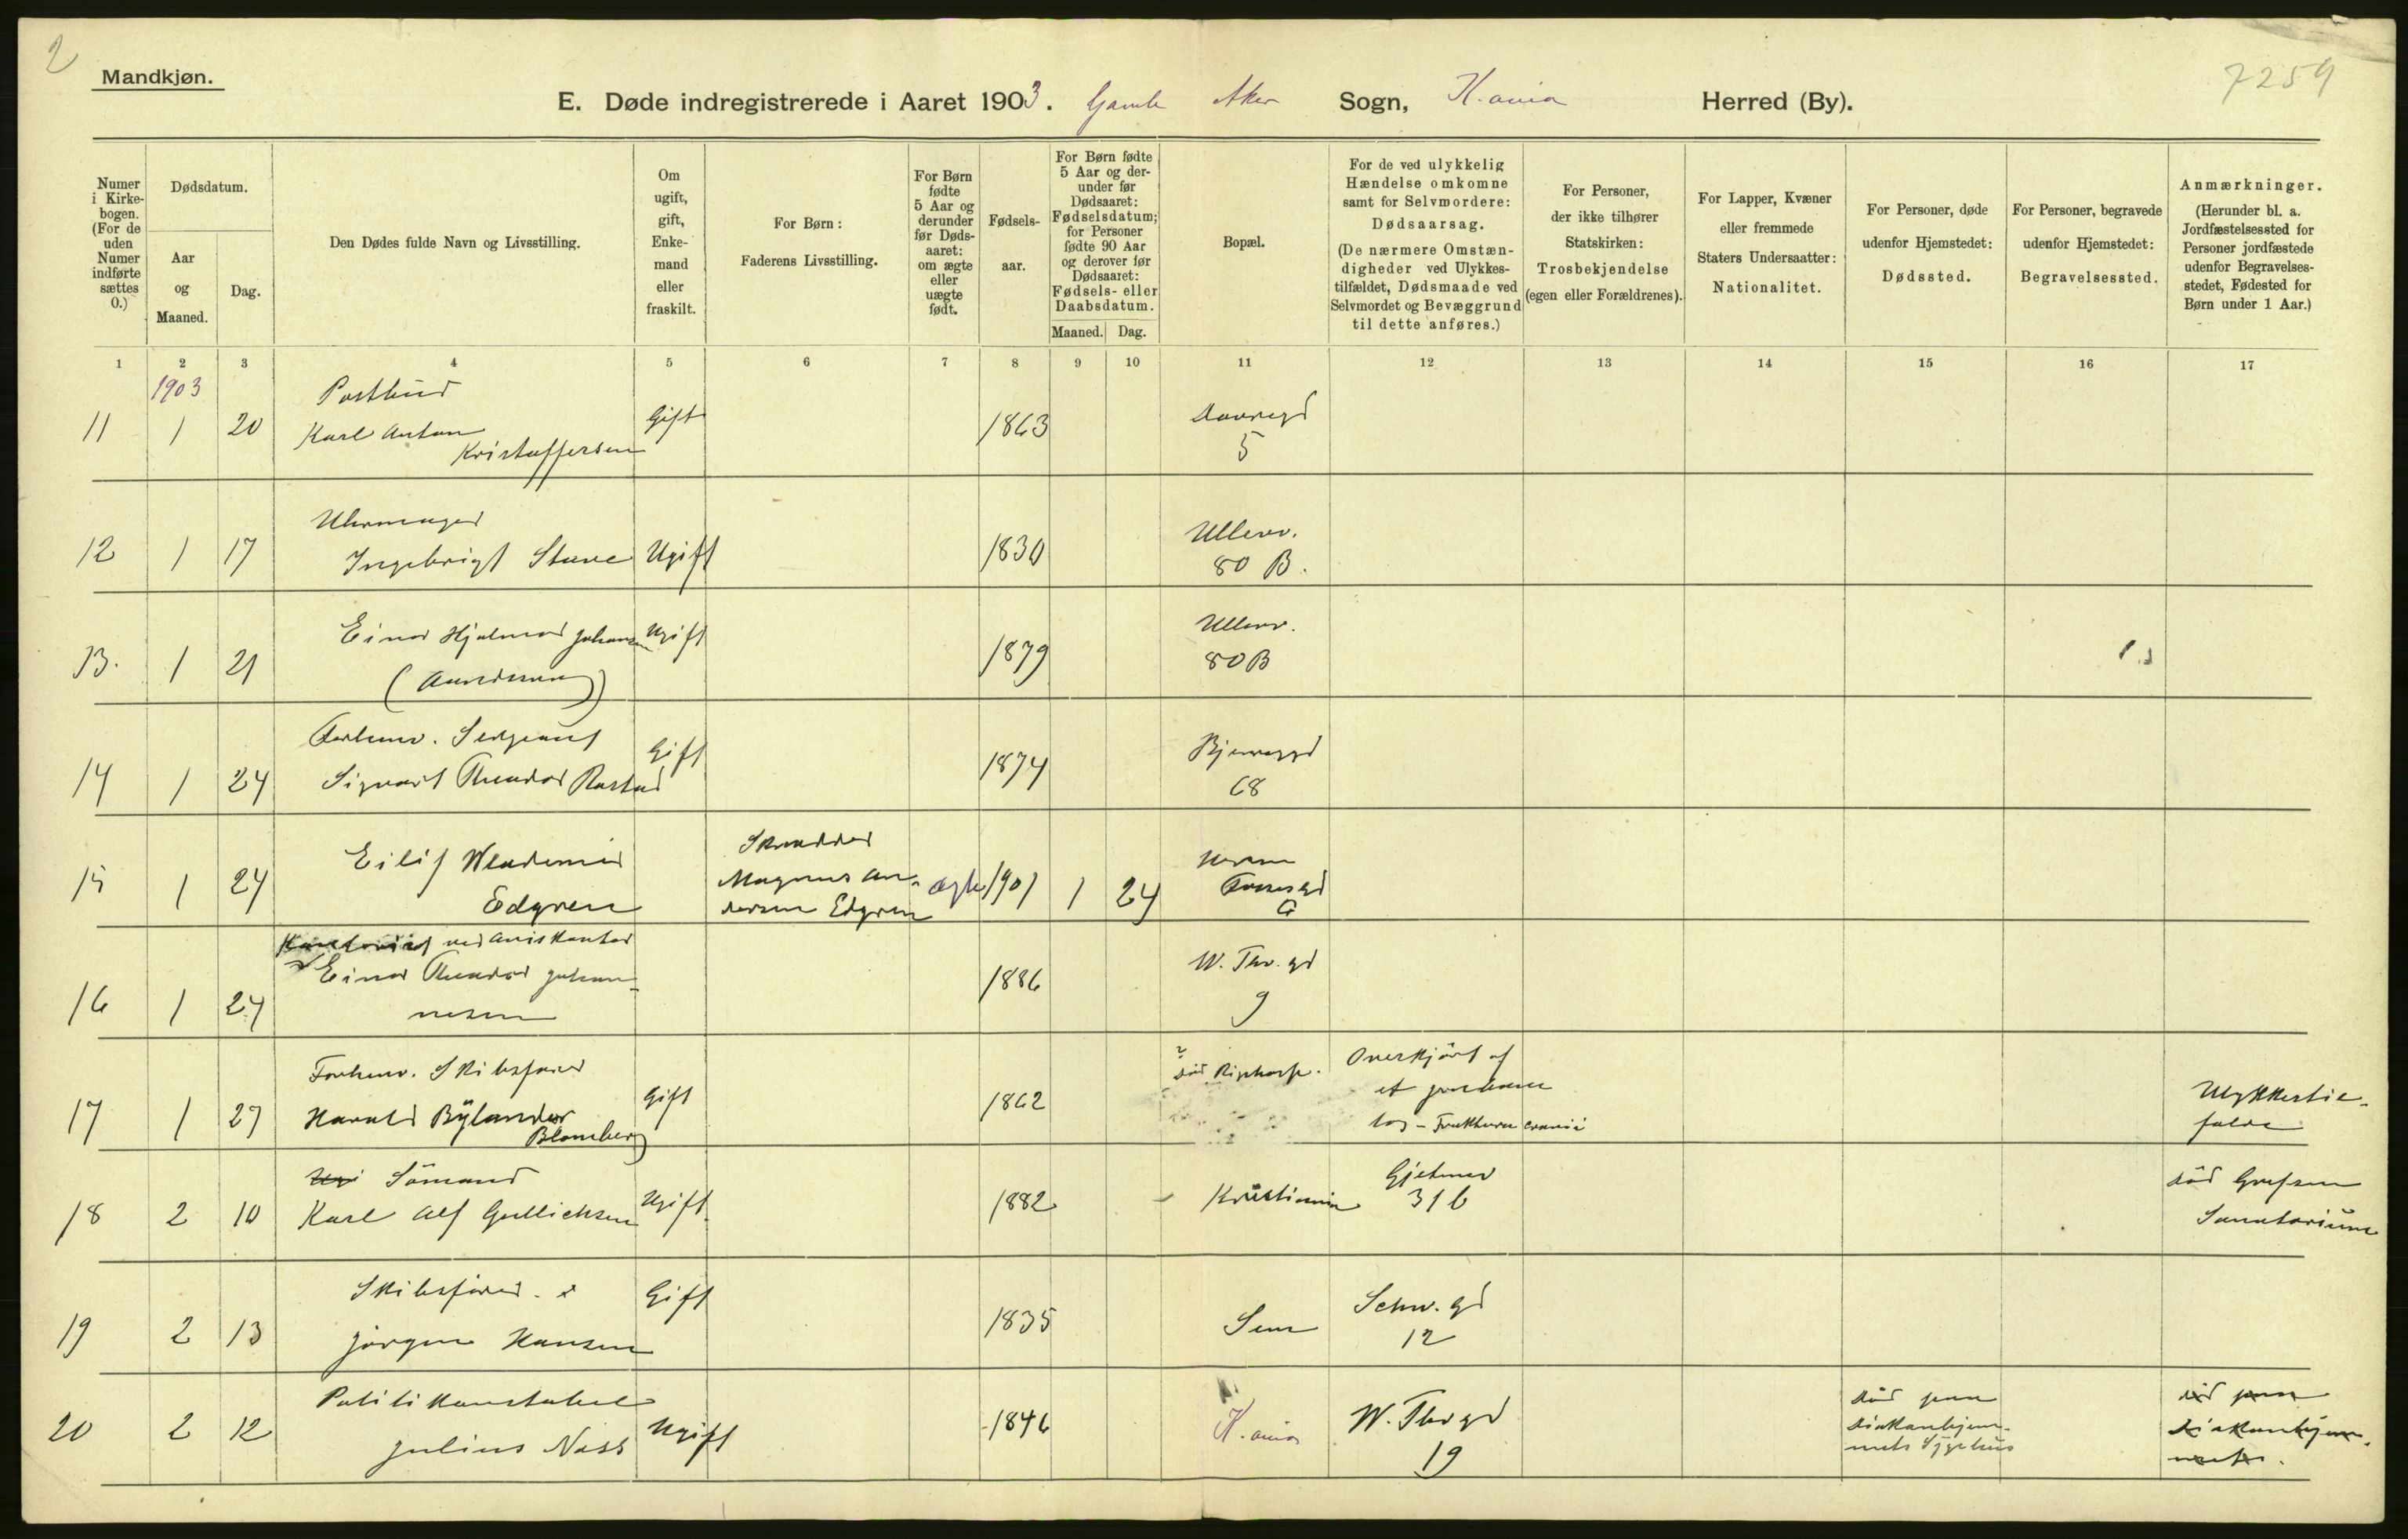 2
Mandkjøn.
7259
E. Døde indregistrerede i Aaret 1903. Gamle Aker Sogn, K.ania Herred (By).
Numer i Kirkebogen. (For de uden Numer indførte sættes 0.)
Dødsdatum.
Aar og Maaned.
Dag.
Den Dødes fulde Navn og Livsstilling.
Om ugift, gift, Enkemand eller fraskilt.
For Børn: Faderens Livsstilling.
For Børn fødte 5 Aar og derunder før Dødsaaret: om ægte eller uægte født.
Fødselsaar.
For Børn fødte 5 Aar og derunder før Dødsaaret: Fødselsdatum; for Personer fødte 90 Aar og derover før Dødsaaret: Fødsels- eller Daabsdatum.
Maaned. Dag.
Bopæl.
For de ved ulykkelig Hændelse omkomne samt for Selvmordere: Dødsaarsag. (De nærmere Omstændigheder ved Ulykkestilfældet, Dødsmaade ved Selvmordet og Bevæggrund til dette anføres.)
For Personer, der ikke tilhører Statskirken: Trosbekjendelse (egen eller Forældrenes).
For Lapper, Kvæner eller fremmede Staters Undersaatter: Nationalitet.
For Personer, døde udenfor Hjemstedet: Dødssted.
For Personer, begravede udenfor Hjemstedet: Begravelsessted.
Anmærkninger. (Herunder bl. a. Jordfæstelsessted for Personer jordfæstede udenfor Begravelsesstedet, Fødested for Børn under 1 Aar.)
1 2 3 4 5 6 7 8 9 10 11 12 13 14 15 16 17
1903
Postbud
11 1 20 Karl Anton Kristoffersen Gift 1863 Dovregd 5
Uhrmager
12 1 17 Ingebrigt Stave Ugift 1830 Ullevv. 80 B.
13. 1 21 Einar Hjalmar Johansen (Aanedsen) Ugift 1879 Ullevv. 80 B
Forhenv. Sergeant
14 1 24 Sigvart Theodor Rastad Gift 1874 Bjerregd 68
15 1 24 Eilif Wladimir Edgren Skrædder Magnus Andersen Edgren ægte 1901 1 24 Fossegd
Kontorist ved Aviskontor
16 1 24 Einar Theodor Johannesen 1886 W. Thr. gd 9
Forhenv. Skibsfører
17 1 27 Harald Bÿlander Blomberg Gift 1862 død Righosp. Overkjørt af et jernbanetog - Fraktura cranii Ulykkestilfælde
Sömand
18 2 10 Karl Alf Gullichsen Ugift 1882 Kristiania Gjetmev 31 b död Grefsen Sanatorium
Skibsfører
19 2 13 Jörgen Hansen Gift 1835 Sem Schw. gd 12
Politikonstabel
20 2 12 Julius Næss Ugift 1846 K.ania W. Thr gd 19 död paa Diakonhjemmets Sygehus död paa Diakonhjemmets.